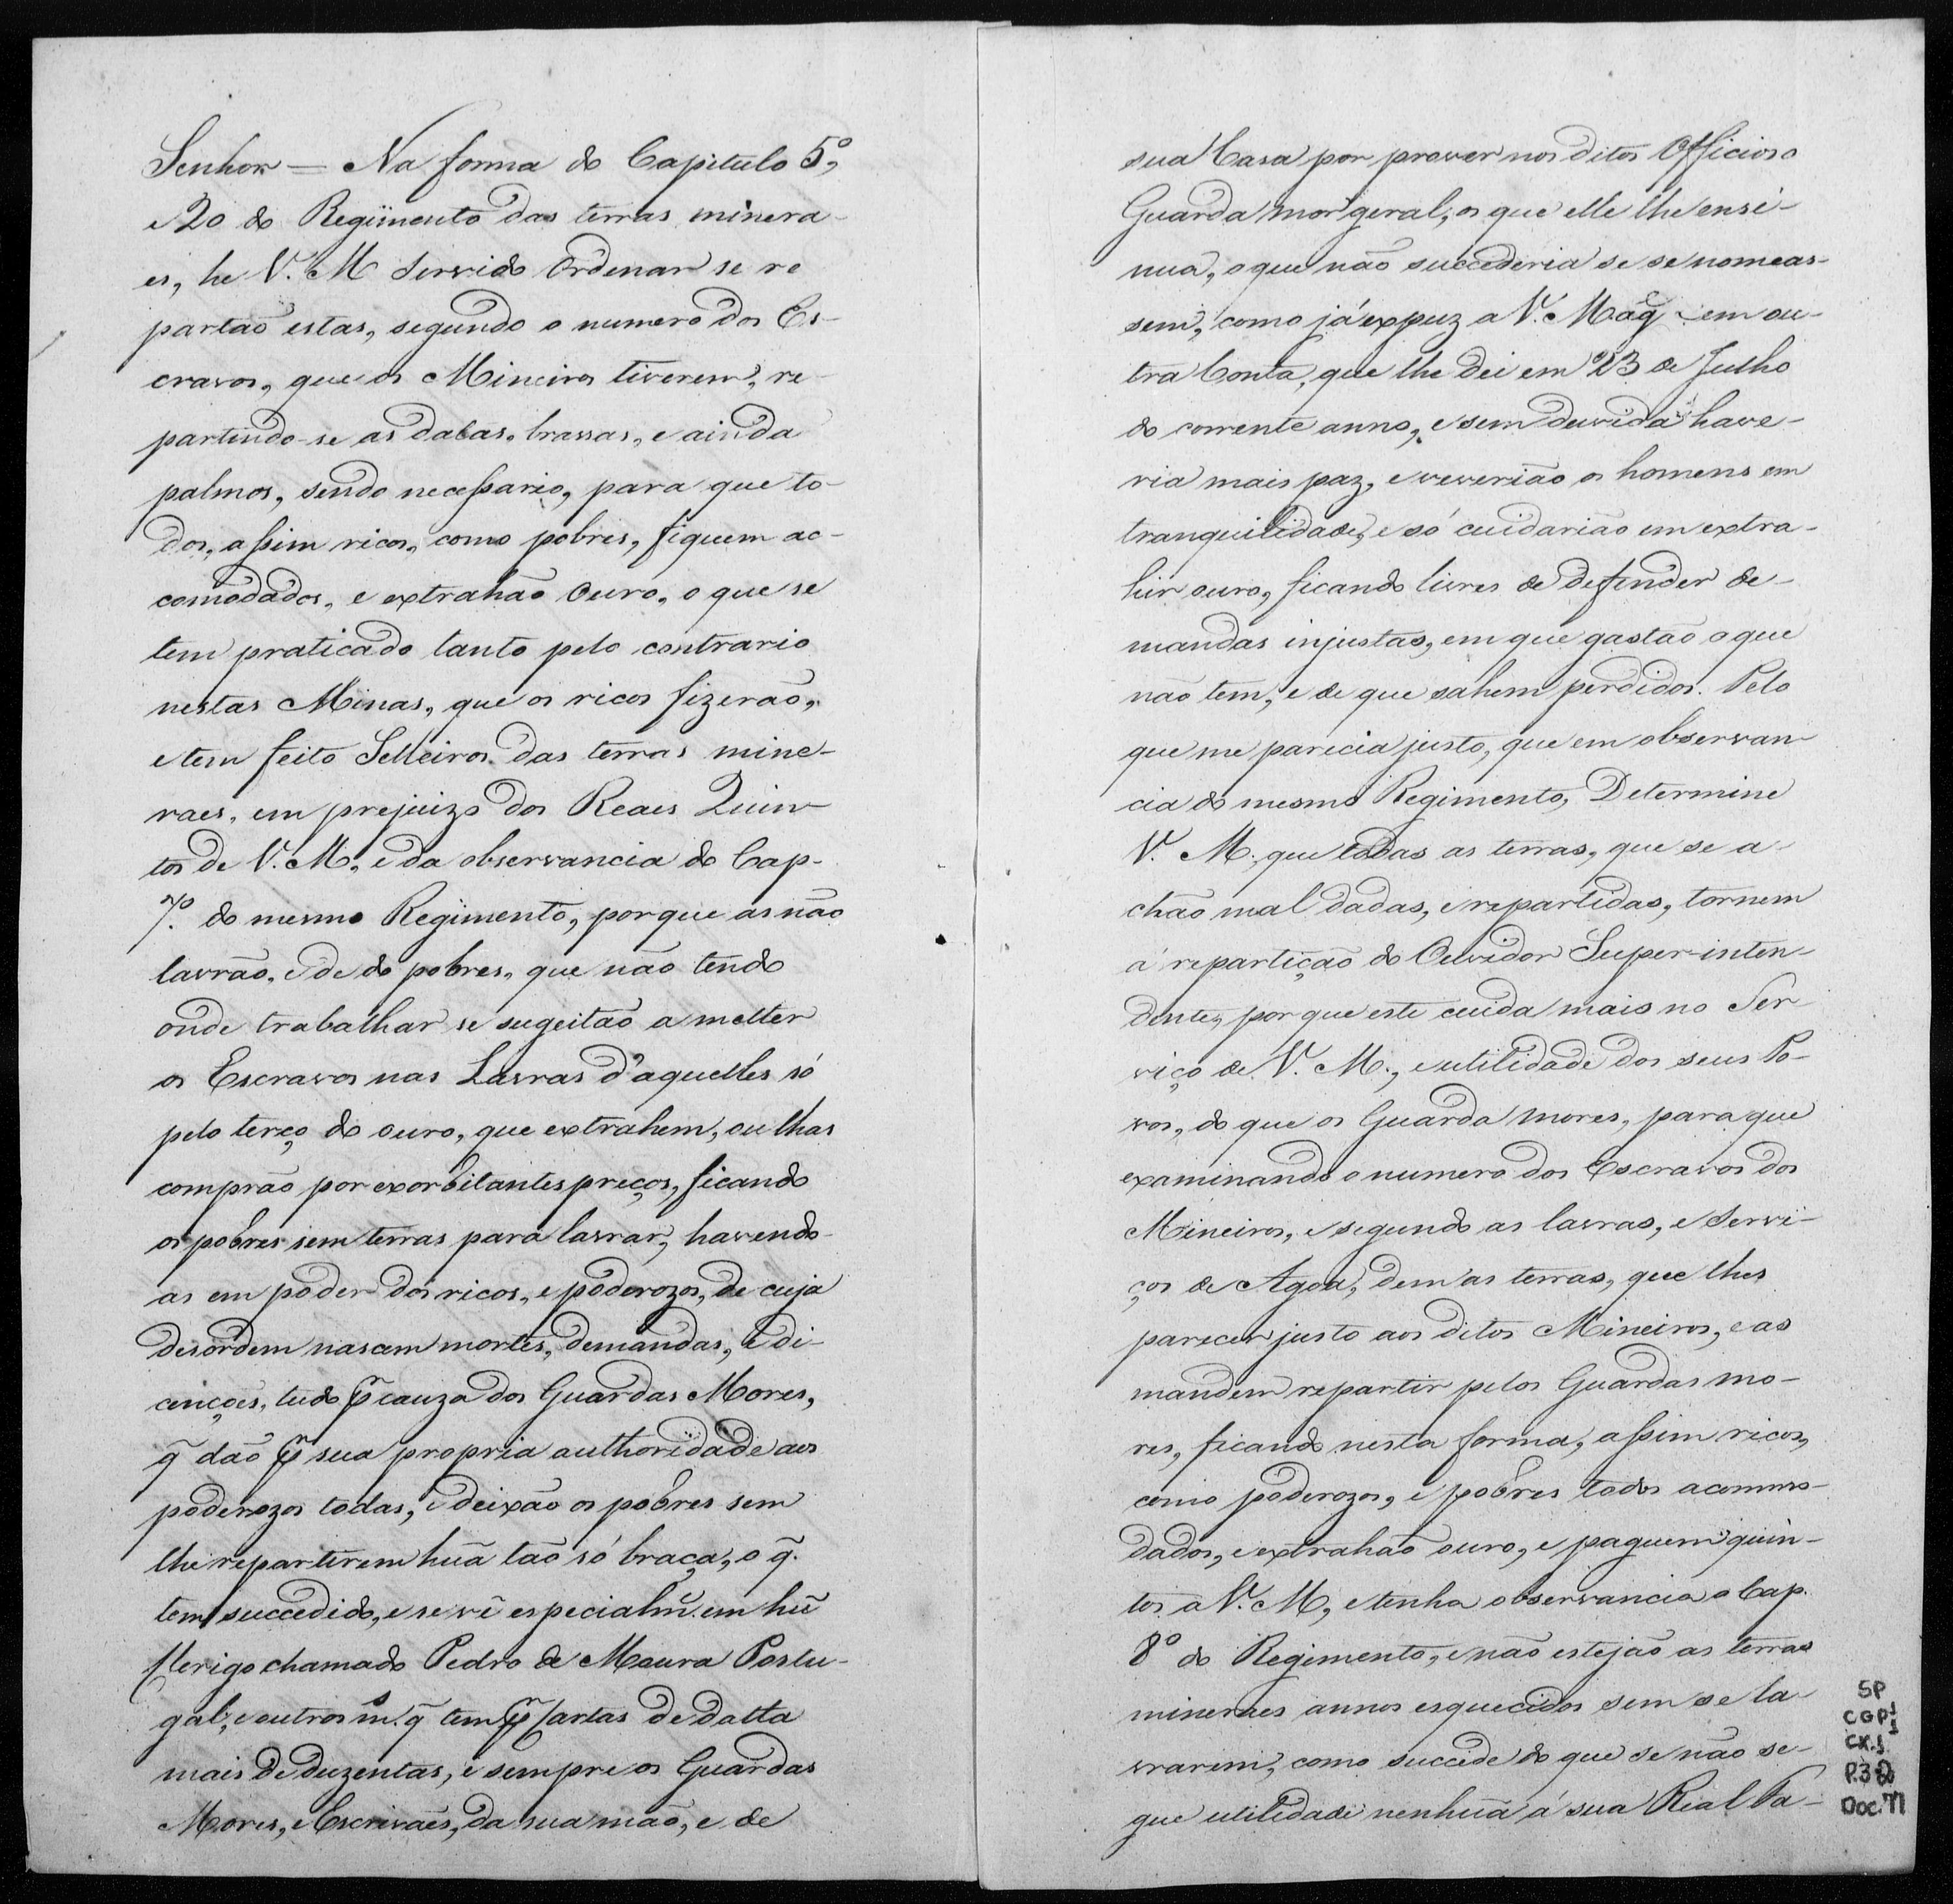 Senhor = Na forma do Capitulo 5º,
e 20 do Regimento das terras minera-
es, he V. M. Servido Ordenar se re
partão estas, segundo o numero dos Es-
cravos, que os Mineiros tiverem, re-
partindo-se as datas, brassas, e ainda
palmos, sendo necessario, para que to-
dos, assim ricos, como pobres, fiquem ac-
comodados, e extrahão Ouro, o que se
tem praticado tanto pelo contrario
nestas Minas, que os ricos fizerão,
e tem feito Selleiros das terras mine-
raes, em prejuizo dos Reaes Quin-
tos de V. M., e da observancia do Cap.
7º. do mesmo Regimento, porque as não
lavrão, e de do pobres, que não tendo
onde trabalhar se sugeitão a metter
os Escravos nas Lavras d'aquelles só
pelo terço do ouro, que extrahem, ou lhas
comprão por exorbitantes preços, ficando
os pobres sem terras para lavrar, havendo-
as em poder dos ricos, e poderozos, de cuja
desordem nascem mortes, demandas, e di-
cenções, tudo p̃ cauza dos Guardas Mores,
q̃ dão p̃ sua propria authoridade aos
poderozos todas, e deixão os pobres sem
lhe repartirem huã tão só braça, o q̃.
tem succedido, e se vê especialm̃. em hũ
Clerigo chamado Pedro de Moura Portu-
gal, e outros m.s q̃ tem p̃ Cartas de datta
mais de duzentas, e sempre os Guardas
Mores, e Escrivães, da sua mão, e de
sua Casa por prover nos ditos Officios o
Guarda mor geral, os que elle lhe ensi-
nua, o que não succederia se se nomeas-
sem, como já expuz a V. Mag.e em ou-
tra Conta, que lhe dei em 23 de Julho
do corrente anno, e sem duvida have-
ria mais paz, e viverião os homens em
tranquilidade, e só cuidarião em extra-
hir ouro, ficando livres de defender de-
mandas injustas, em que gastão o que
não tem, e de que sahem perdidos. Pelo
que me parecia justo, que em observan-
cia do mesmo Regimento, Determine
V. M., que todas as terras, que se a-
chão mal dadas, e repartidas, tornem
á repartição do Ouvidor Super-inten-
dente, por que este cuida mais no Ser-
viço de V. M., e utilidade dos seus Po-
vos, do que os Guarda mores, para que
examinando o numero dos Escravos dos
Mineiros, e segundo as lavras, e Servi-
ços de Agoa, dem as terras, que lhes
parecer justo aos ditos Mineiros, e as
mandem repartir pelos Guardas mo-
res, ficando nesta forma, assim ricos,
como poderozos, e pobres todos acommo-
dados, e extrahão ouro, e paguem quin-
tos a V. M., e tenha observancia o Cap.
8º do Regimento, e não estejão as terras
mineraes annos esquecidos sem se la-
vrarem, como succede do que se não se-
gue utilidade nenhuã á sua Real Fa-
SP
CGP1
1
CX.1
P.32
Doc.71